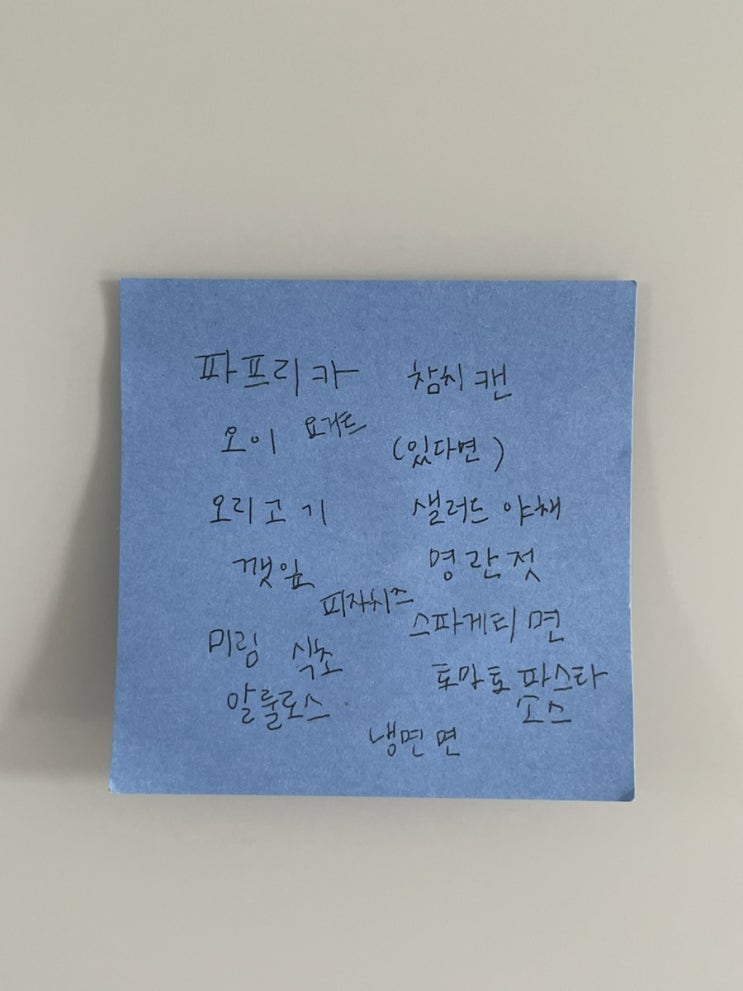 파프리카
참치 캔
오이 요거트
(있다면)
오리고기
샐러드 야채
깻잎
명란젓
피자치즈
스파게티 면
미림 식초
토마토 파스타
소스
알룰로스
냉면 면